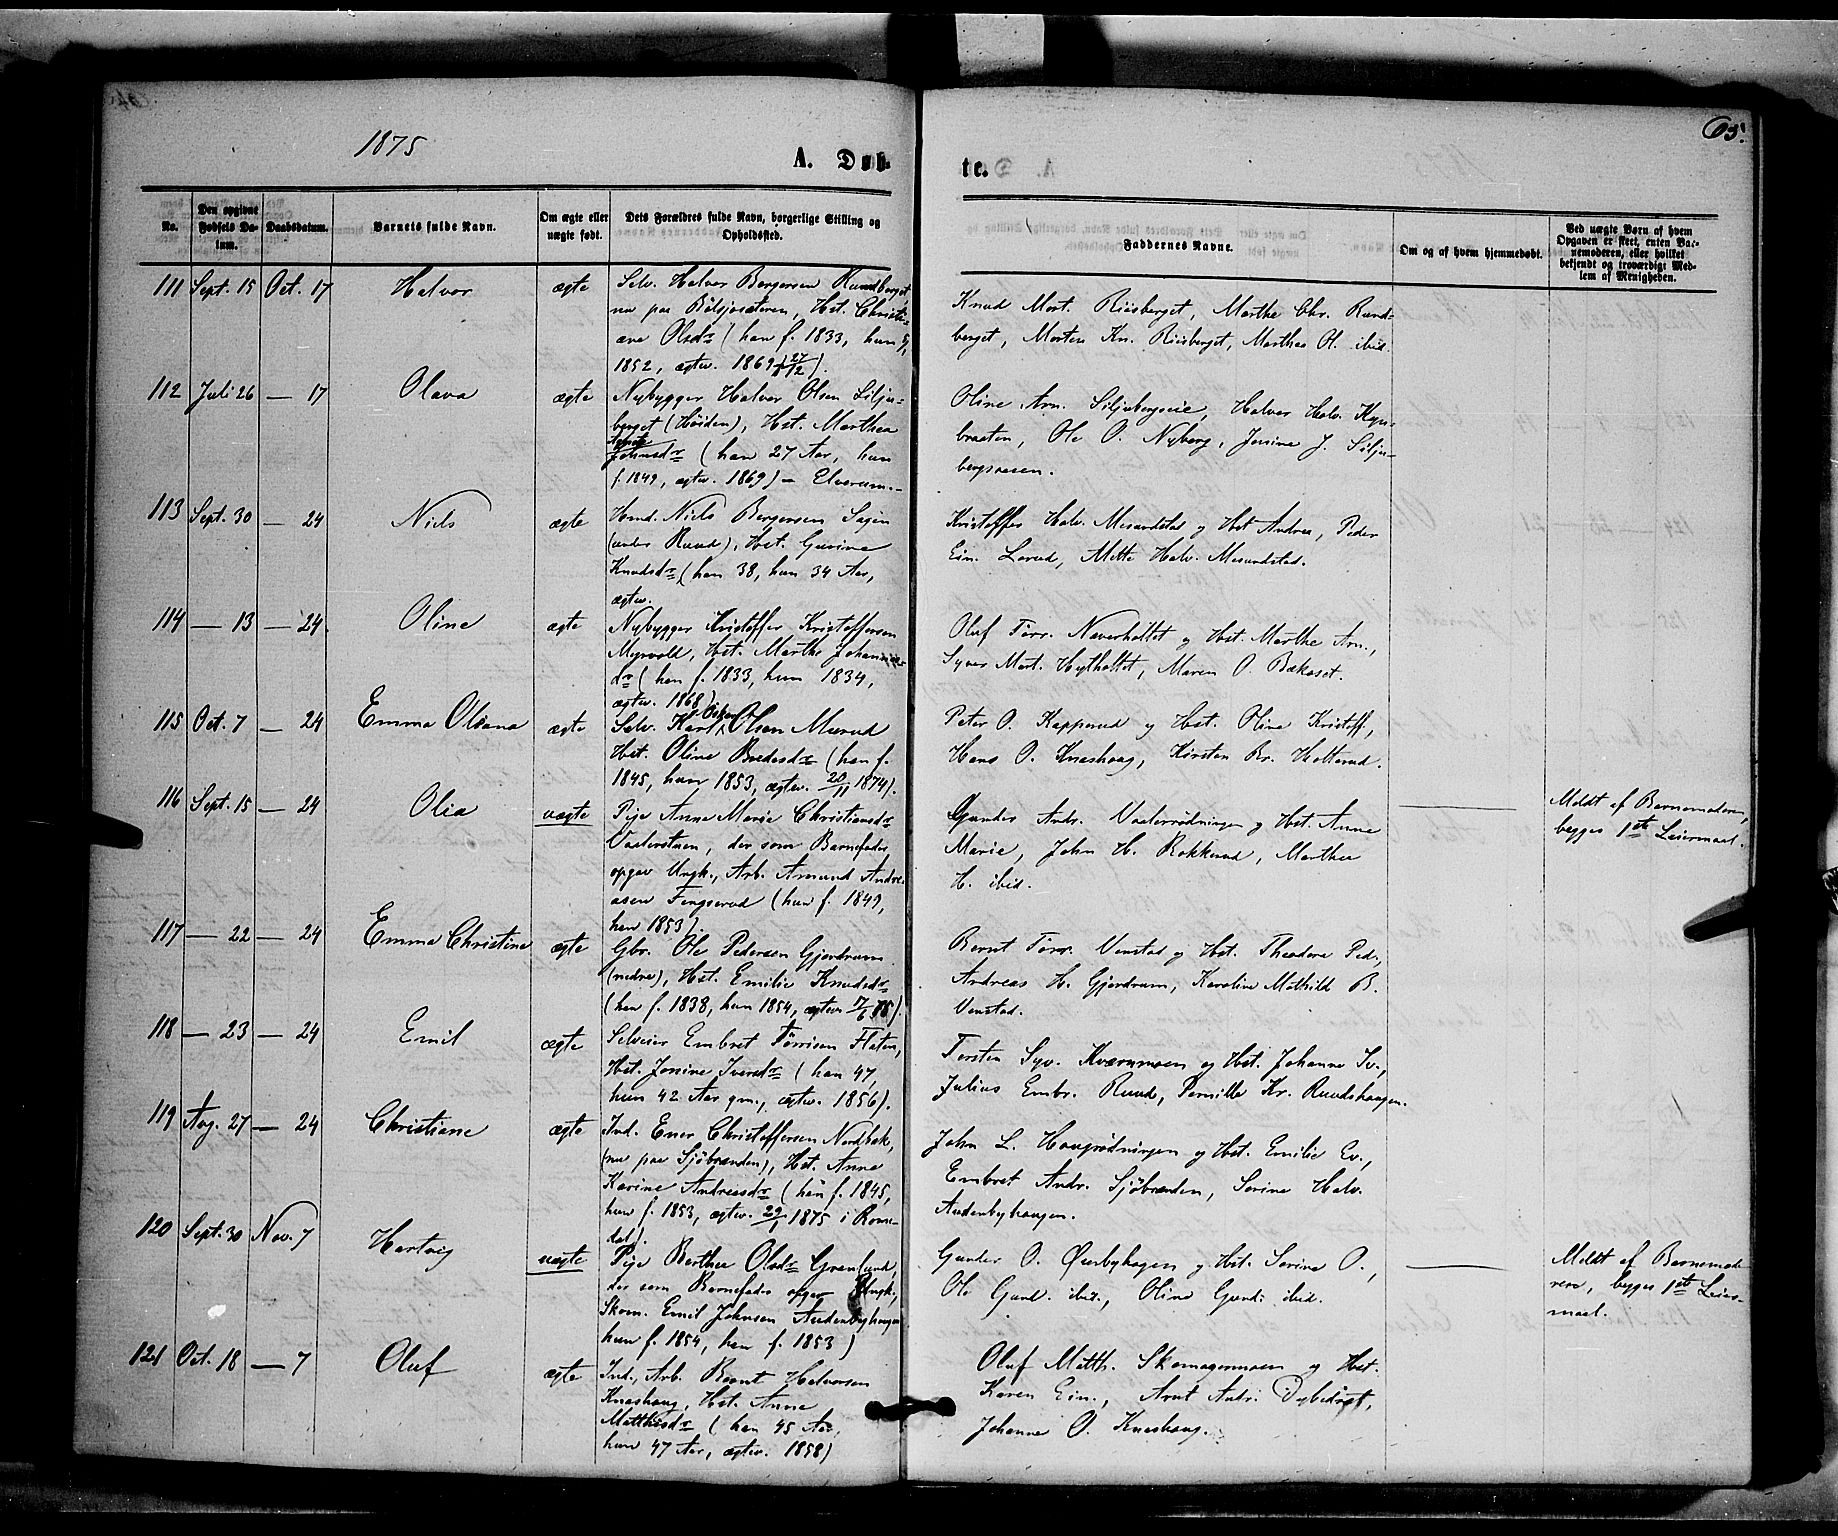 1875
A. Døb-
te.
65.
No.
Den opgivne Fødsels Datum.
Daabsdatum.
Barnets fulde Navn.
Om ægte eller uægte født.
Dets Forældres fulde Navn, borgerlige Stilling og Opholdssted.
Faddernes Navne.
Om og af hvem hjemmedøbt.
Ved uægte Børn af hvem Opgaven er skeet, enten Barnemoderen, eller hvilket bekjendt og troværdigt Medlem af Menigheden.
111 Sept. 15 Oct. 17 Halvor ægte Selv. Halvor Bergersen Rundberget
nu paa Bölsjösæteren, Hst. Christi-
ane Olsdr (han f. 1833, hun
1852, egtev. 1869 27/12).
Knud Mort. Riisberget, Marthe Chr. Rund-
berget, Morten Kn. Riisberget, Marthea O. ibid.
112 Juli 26 — 17 Olava ægte Nybygger Halvor Olsen Silju-
berget (Høiden), Hst. Marthea
Johnsdr (han 27 Aar, hun
f. 1849, egtev. 1869) — Elverum.
Oline Arn. Siljubergseie, Halvor Halv. Kyn-
braaten, Ole O. Nyberg, Jensine J. Silju-
bergsaasen.
113 Sept. 30 — 24 Niels ægte Hmd. Niels Bergersen Sagen
(under Ruud), Hst. Gurine
Knudsdr (han 38, hun 34 Aar,
egtev.
Kristoffer Halv. Mesundstad og Hst. Andrea, Peder
Ein. Lerud, Mette Halv. Mesundstad.
114 — 13 — 24 Oline ægte Nybygger Kristoffer Kristoffersen
Myrvold, Hst. Marthe Johannes-
dr (han f. 1833, hun 1834,
egtev. 1868)
Oluf Törr. Naverholtet og Hst. Marthe Arn.,
Syver Mort. Hytholtet, Maren O. Bækaset.
115 Oct. 7 — 24 Emma Oleana ægte Selv. Karl Oskar Olsen Mærud
Hst. Oline Bredesdr (han f.
1845, hun 1853, egtev. 20/11 1874).
Peter O. Kapperud og Hst. Oline Kristoff,
Hans O. Knashaug, Kirsten Br. Holterud.
116 Sept. 15 — 24 Olea uægte Pige Anne Marie Christiansdr
Vaalerstuen, der som Barnefader
opgav Ungk., Arb. Amund Andre-
asen Fingserud (hun f. 1849,
han 1853).
Gunder Andr. Vaalerrödningen og Hst. Anne
Marie, John H. Rokkerud, Marthea
H. ibid.
Meldt af Barnemoderen,
begges 1ste Leiermaal.
117 — 22 — 24 Emma Christine ægte Gbr. Ole Pedersen Gjerdrum
(nedre), Hst. Emilie Knudsdr
(han f. 1838, hun 1854, egtev. 7/6 75).
Bernt Törr. Venstad og Hst. Theodora Ped.,
Andreas H. Gjerdrum, Karoline Mathild B.
Venstad.
118 — 23 — 24 Emil ægte Selveier Embret Törrisen Flaten,
Hst. Jensine Iversdr (han 47,
hun 42 Aar gm., egtev. 1856).
Torsten Syv. Kværnmoen og Hst. Johanne Iv.,
Julius Embr. Ruud, Pernille Kr. Ruudshaugen.
119 Aug. 27 — 24 Christiane ægte Ind. Ener Christoffersen Nordbæk,
(nu paa Sjöbranden), Hst. Anne
Karine Andreasdr (han f. 1845,
hun f. 1853, egtev. 29/1 1875 i Rome-
dal).
John L. Haugrödningen og Hst. Emilie Ev.,
Embret Andr. Sjöbranden, Serine Halv.
Audenbyhaugen.
120 Sept. 30 Nov. 7 Hartvig uægte Pige Berthea Olsdr Grønlund,
der som Barnefader opgav Ungk.,
Skom. Emil Johnsen Audenbyhaugen
hun f. 1854, han f. 1853)
Gunder O. Øverbyhagen og Hst. Serine O.,
Ole Gund. ibid., Oline Gund. ibid.
Meldt af Barnemod-
eren, begges 1ste Leier-
maal.
121 Oct. 18 — 7 Oluf ægte Ind., Arb. Bernt Halvorsen
Knashaug, Hst. Anne
Matthisdr (han 45 Aar,
hun 47 Aar, egtev. 1858)
Oluf Matth. Skomagermoen og Hst.
Karen Ein., Arnt Andr. Dybedræt,
Johanne O. Knashaug.